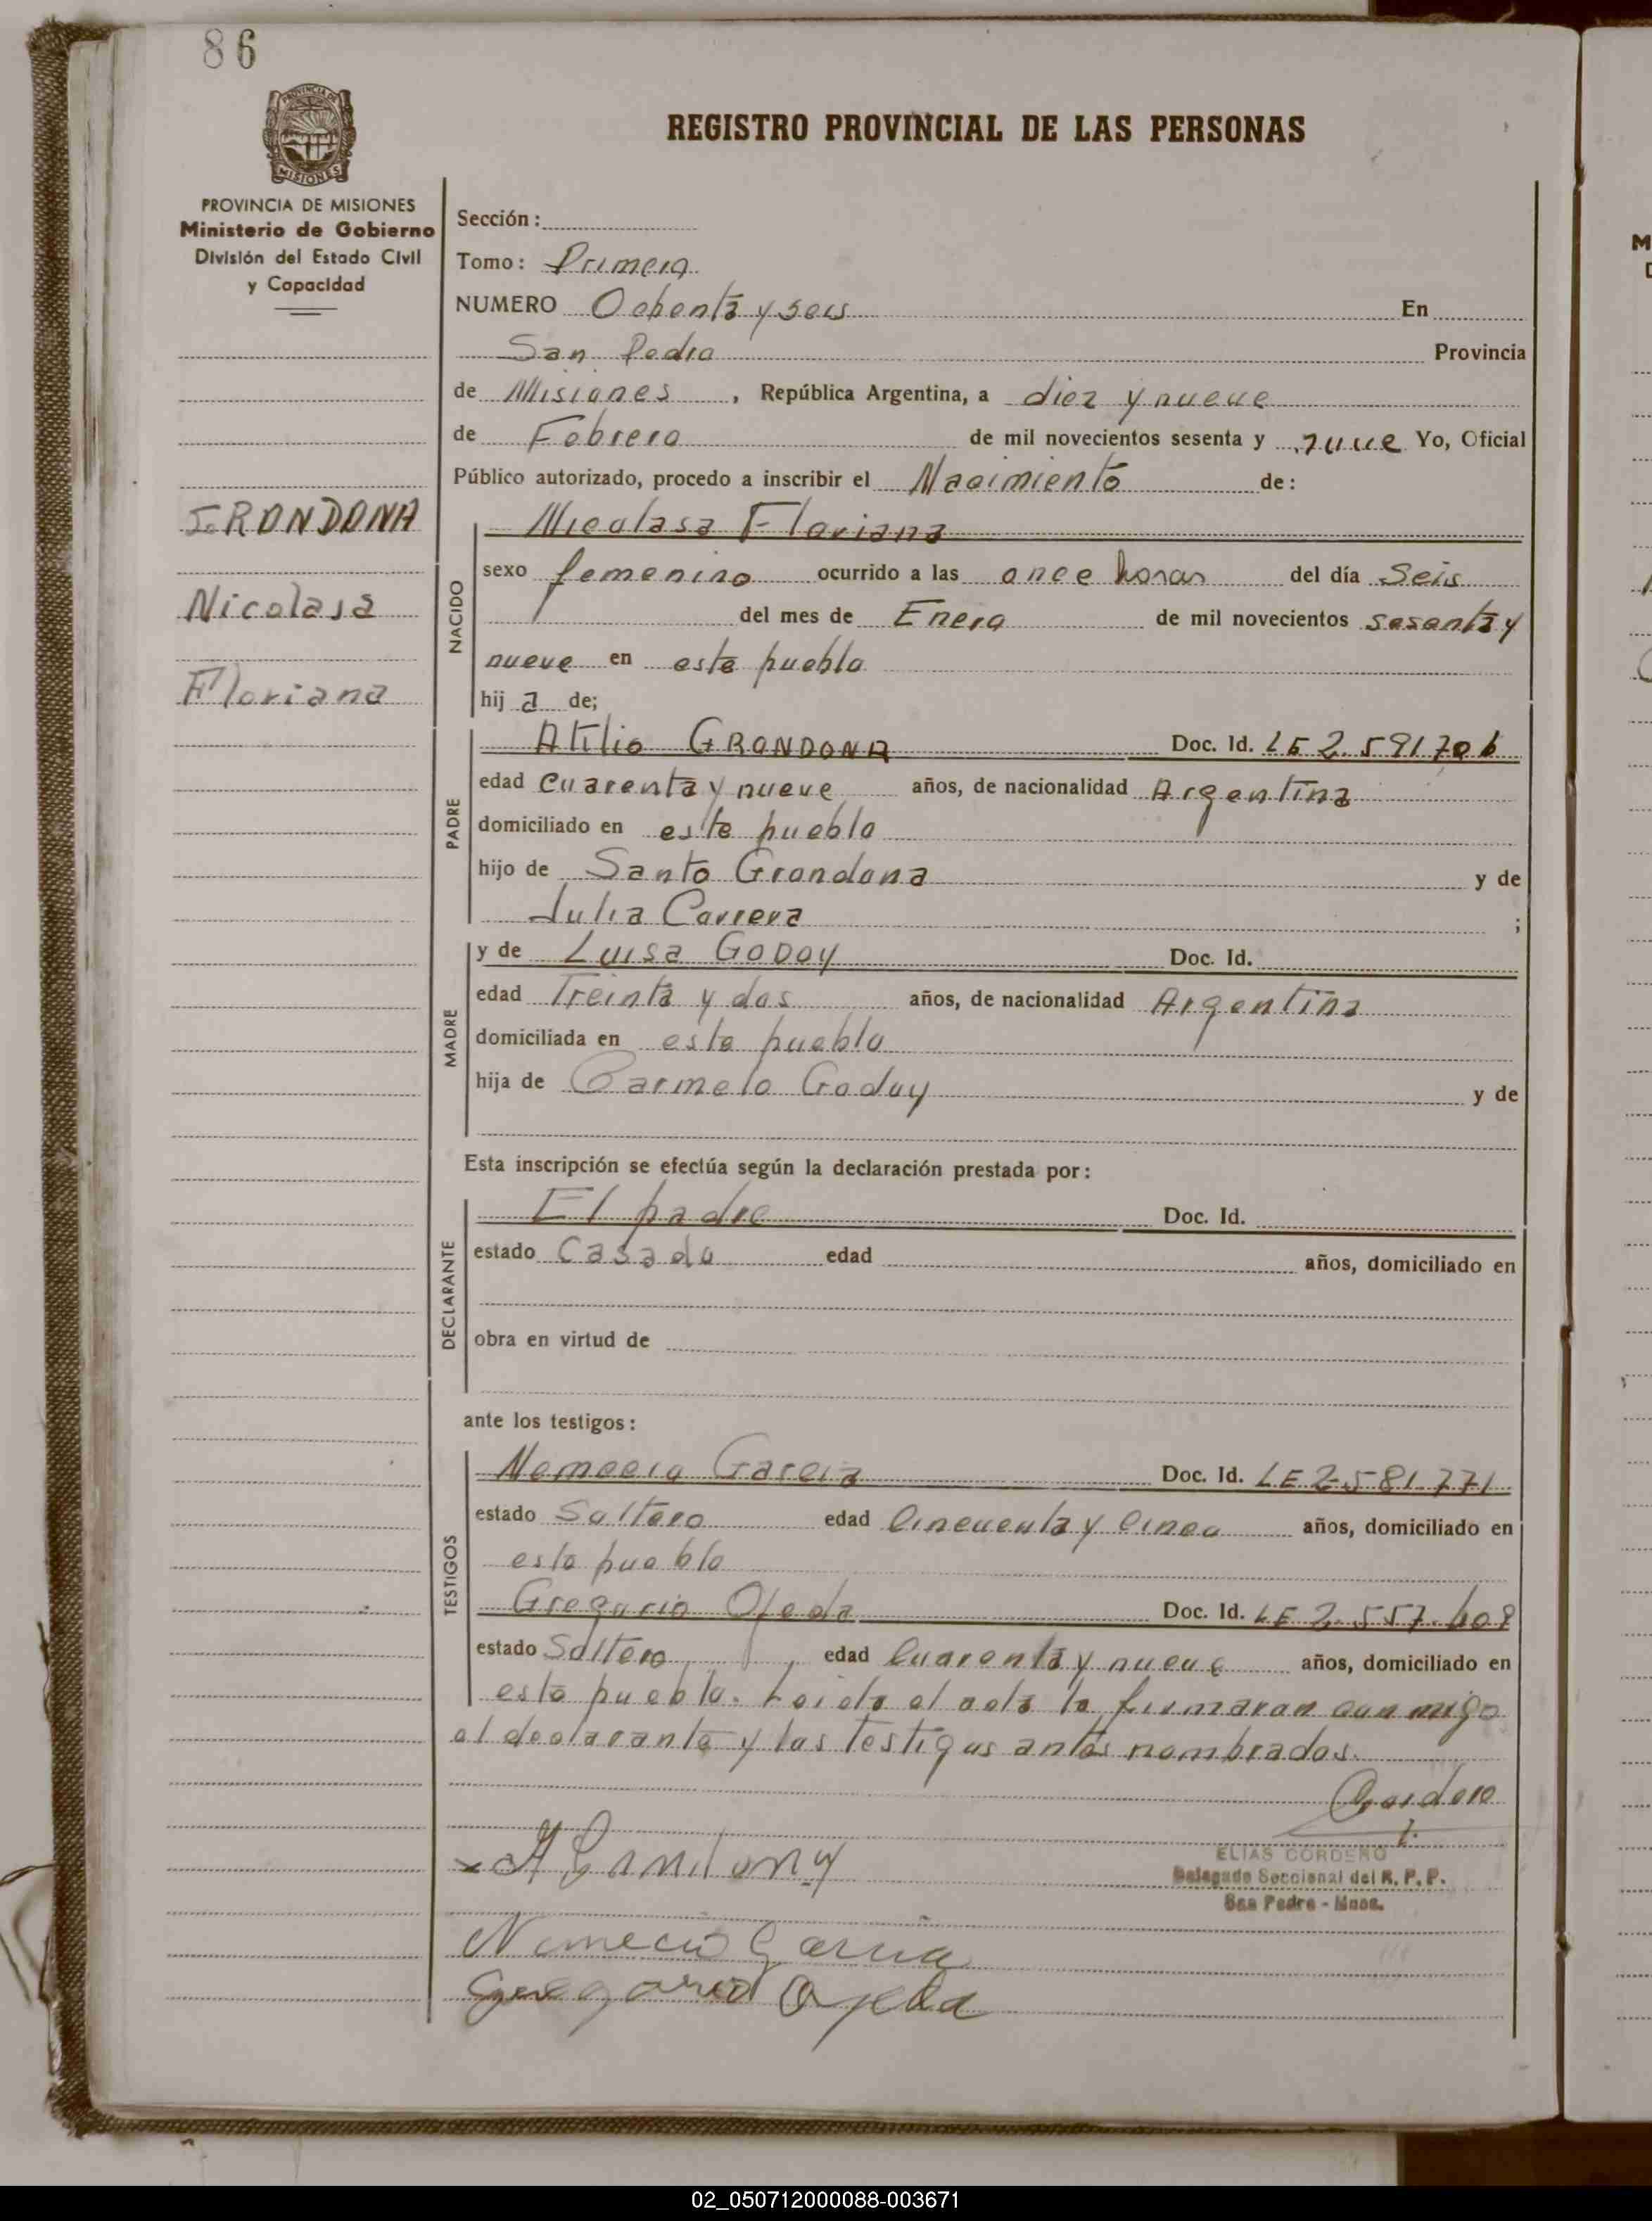 86
REGISTRO PROVINCIAL DE LAS PERSONAS
PROVINCIA DE MISIONES
MISIONES
PROVINCIA DE MISIONES
Ministerio de Gobierno
División del Estado Civil
y Capacidad
GRONDONA
Nicolasa
Floriana
Sección:
Tomo: Primero
NUMERO Ochenta y seis En
San Pedro Provincia
de Misiones, República Argentina, a diez y nueve
de Febrero de mil novecientos sesenta y nueve Yo, Oficial
Público autorizado, procedo a inscribir el Nacimiento de:
NACIDO
Nicolasa Floriana
sexo femenino ocurrido a las once horas del día Seis
del mes de Enero de mil novecientos sesenta y
nueve en este pueblo
hij a de;
PADRE
Atilio GRONDONA Doc. Id. LE 2.591706
edad cuarenta y nueve años, de nacionalidad Argentina
domiciliado en este pueblo
hijo de Santo Grondona y de
Julia Carrera ;
MADRE
y de Luisa GODOY Doc. Id.
edad Treinta y dos años, de nacionalidad Argentina
domiciliada en este pueblo
hija de Carmelo Godoy y de
Esta inscripción se efectúa según la declaración prestada por:
DECLARANTE
El padre Doc. Id.
estado Casado edad años, domiciliado en
obra en virtud de
ante los testigos:
TESTIGOS
Nemecio Garcia Doc. Id. LE 2.581.771
estado Soltero edad Cincuenta y cinco años, domiciliado en
este pueblo
Gregorio Ojeda Doc. Id. LE 2.557.608
estado Soltero edad Cuarenta y nueve años, domiciliado en
este pueblo. Leida el acta la firmaron conmigo
el declarante y los testigos antes nombrados.
Cordero
ELIAS CORDERO
Delegado Seccional del R. P. P.
San Pedro - Mnes.
Nemecio Garcia
Gregorio Ojeda
02_050712000088-003671